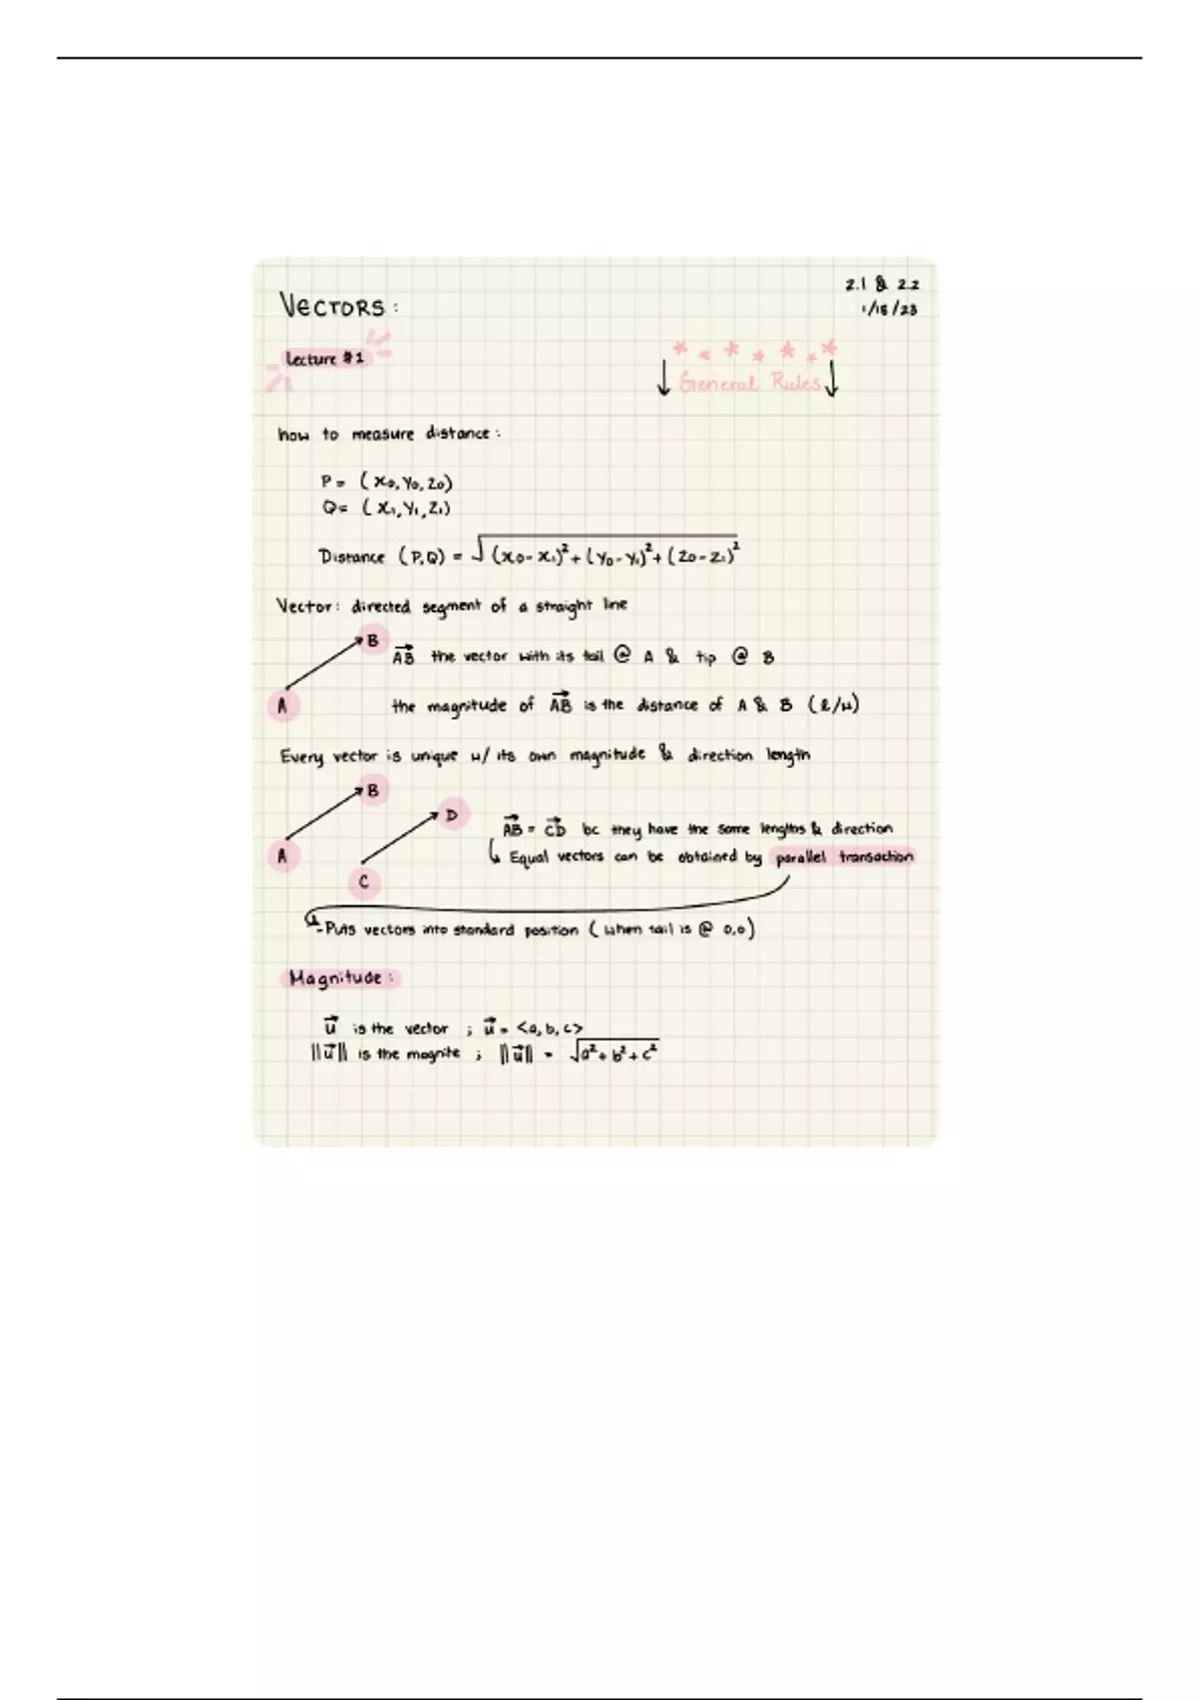 VECTORS:
2.1 & 2.2
1/18/23
Lecture #1
General Rules
how to measure distance:
P = (x₀, y₀, z₀)
Q = (x₁, y₁, z₁)
Distance (P,Q) = √(x₀-x₁)²+(y₀-y₁)²+(z₀-z₁)²
Vector: directed segment of a straight line
B
AB⃗ the vector with its tail @ A & tip @ B
A
the magnitude of AB⃗ is the distance of A & B (l/w)
Every vector is unique w/ its own magnitude & direction length
B
D
AB⃗ = CD⃗ bc they have the same lengths & direction
A
Equal vectors can be obtained by parallel transaction
C
-Puts vectors into standard position (when tail is @ 0,0)
Magnitude:
u⃗ is the vector ; u⃗ = <a, b, c>
||u⃗|| is the magnite ; ||u⃗|| = √a²+b²+c²